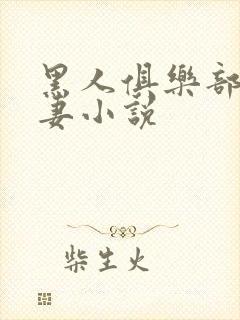 黑人俱樂部
妻小說
柴生火